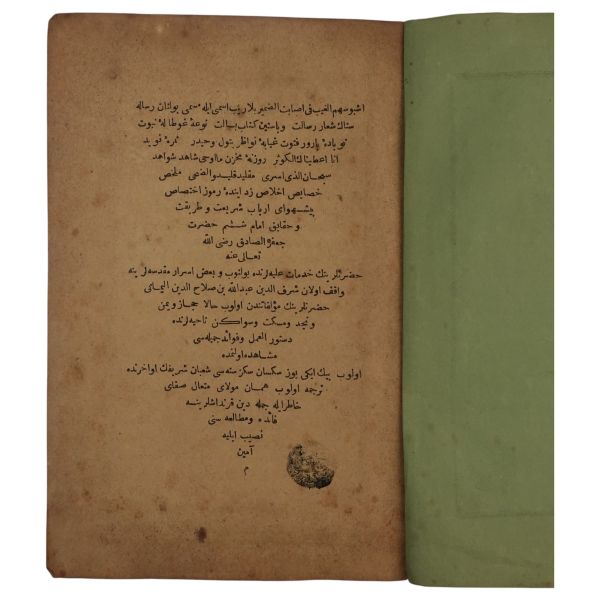 اشبو سهم الغيب فى اصابت الضمير بلاريب اسمى ايله مسمى بولنان رساله
سنك شعار رسالت و ياسنى كتاب بسالت نوعهٔ غوطا له نبوت
نو بادهٔ بارور فتوت غيابه نواظر بتول و حيدر ثمرهٔ نويد
انا اعطيناك الكوثر روزنهٔ مخزن ما اوحى شاهد شواهد
سبحان الذى اسرى مقليد قليد و الضحى ملخص
خصايص اخلاص زداينده رموز اختصاص
پيشواى ارباب شريعت و طريقت
و حقايق امام ششم حضرت
جعفر الصادق رضى الله
تعالى عنه
حضرتلرينك خدمات عليه لرنده بولنوب و بعض اسرار مقدسه لرينه
واقف اولان شرف الدين عبدالله بن صلاح الدين اليمانى
حضرتلرينك مؤلفاتندن اولوب حالا حجاز و يمن
و نجد و مسكت و سواكن ناحيه لرنده
دستور العمل و فوائد جميله سى
مشاهده اولنمده
اولوب بيك ايكى يوز سكسان سكز سنه سى شعبان شريفك اواخرنده
ترجمه اولوب همان مولاى متعال صفاى
خاطر ايله جمله دين قرنداشلرينه
فائده و مطالعه سنى
نصيب ايليه
آمين
م